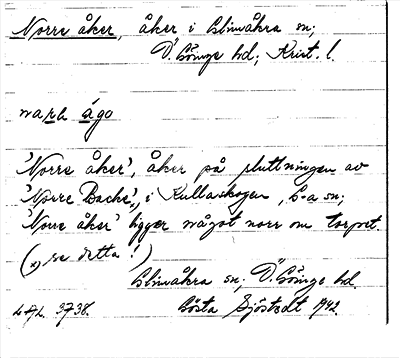 Norre åker, åker i Glimåkra sn;
Ö. Göinge hd; Krist. l.
naʀə ågo
'Norre åker', åker på sluttningen av
'Norre Backe', i Kullaskogen, G-a sn;
'Norre åker' ligger något norr om torpet.
(x) se detta!)
Glimåkra sn; Ö. Göinge hd.
LAL. 3738. Gösta Sjöstedt 1942.